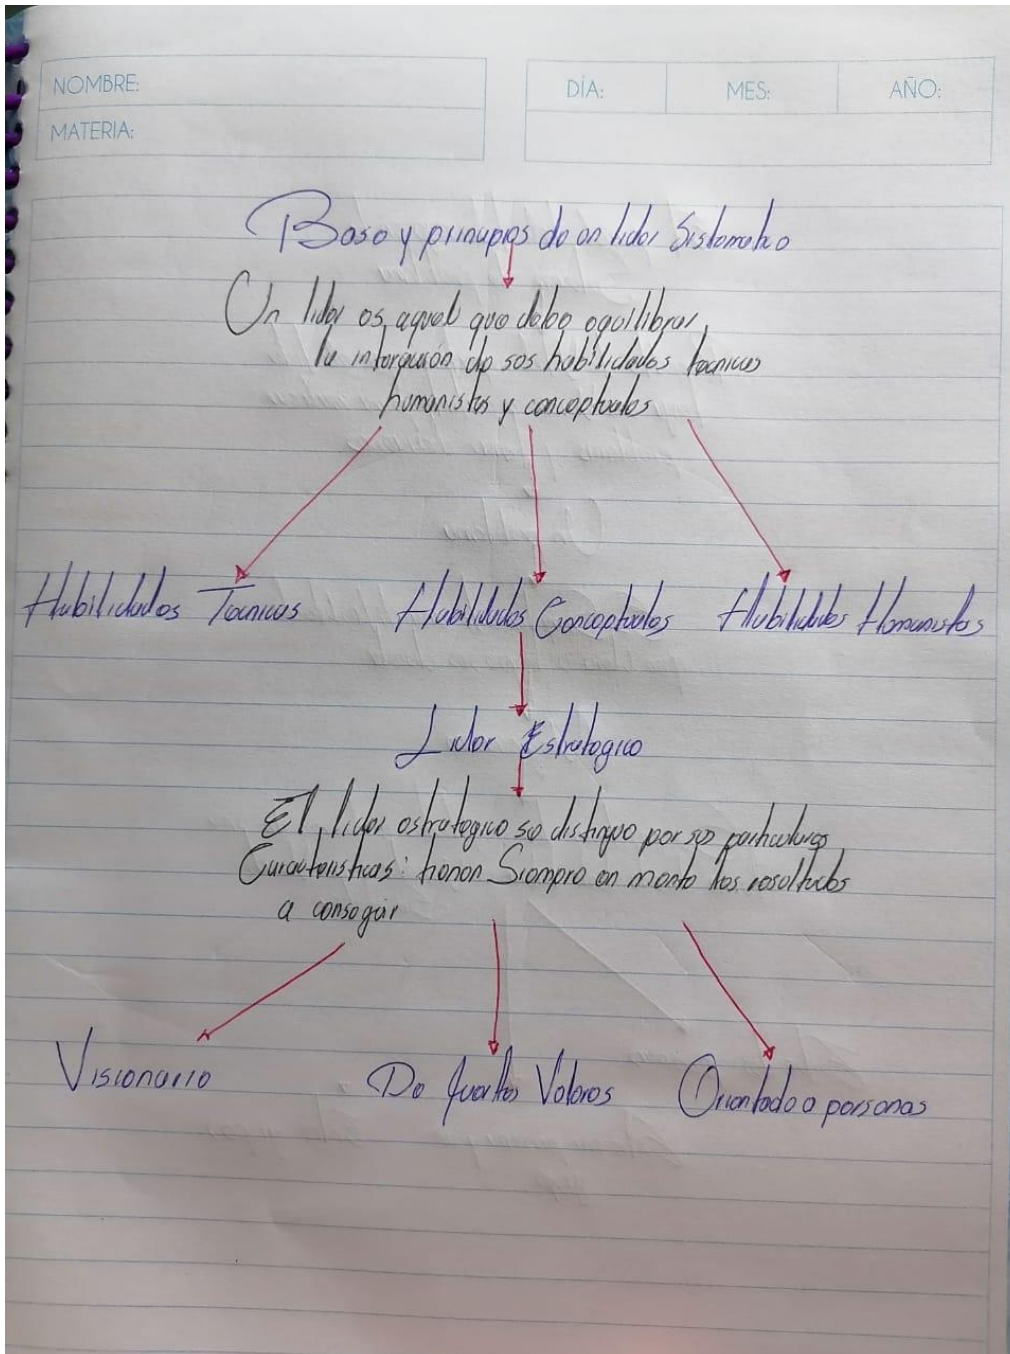 NOMBRE:
MATERIA:
DÍA: MES: AÑO:
Base y principios de un lider Sistematico
Un lider es aquel que debe equilibrar,
la intergración de sus habilidades tecnicas
humanistas y conceptuales
Habilidades Tecnicas
Habilidades Conceptuales
Habilidades Humanistas
Lider Estrategico
El lider estrategico se distingue por sus particulares
Caracteristicas: tienen Siempre en mente los resultados
a conseguir
Visionario
De fuertes Valores
Orientado a personas